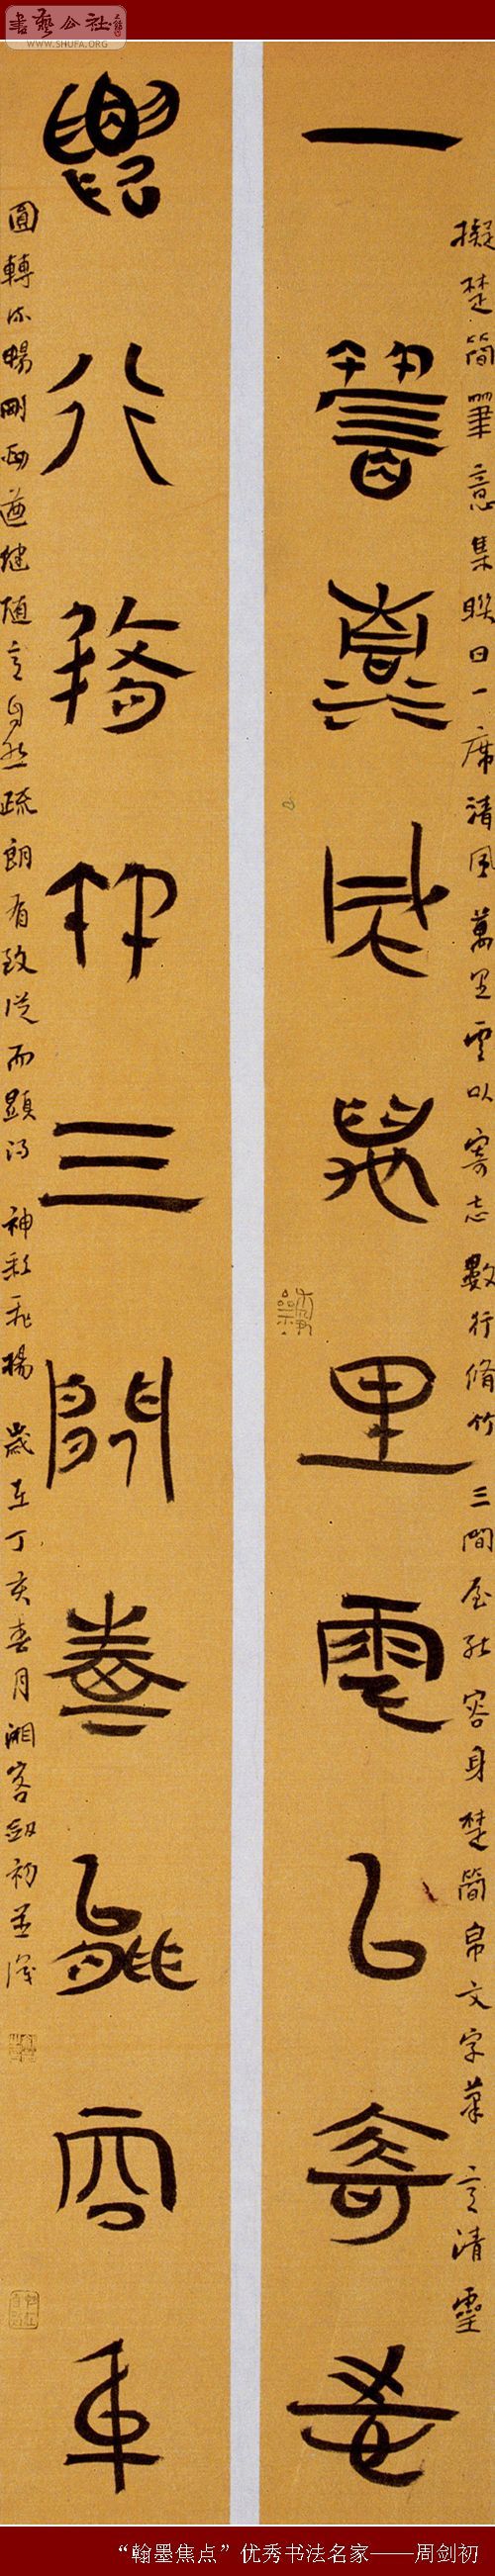 書藝公社
WWW.SHUFA.ORG
一席清風萬里雲以寄志
數行脩竹三間屋能容身
擬楚簡筆意集聯曰一席清風萬里雲以寄志數行脩竹三間屋能容身楚簡帛文字筆意清靈
圓轉流暢剛而遒健隨意自然疏朗有致從而顯得神彩飛揚歲在丁亥春月湘客劍初並識
“翰墨焦点”优秀书法名家——周剑初